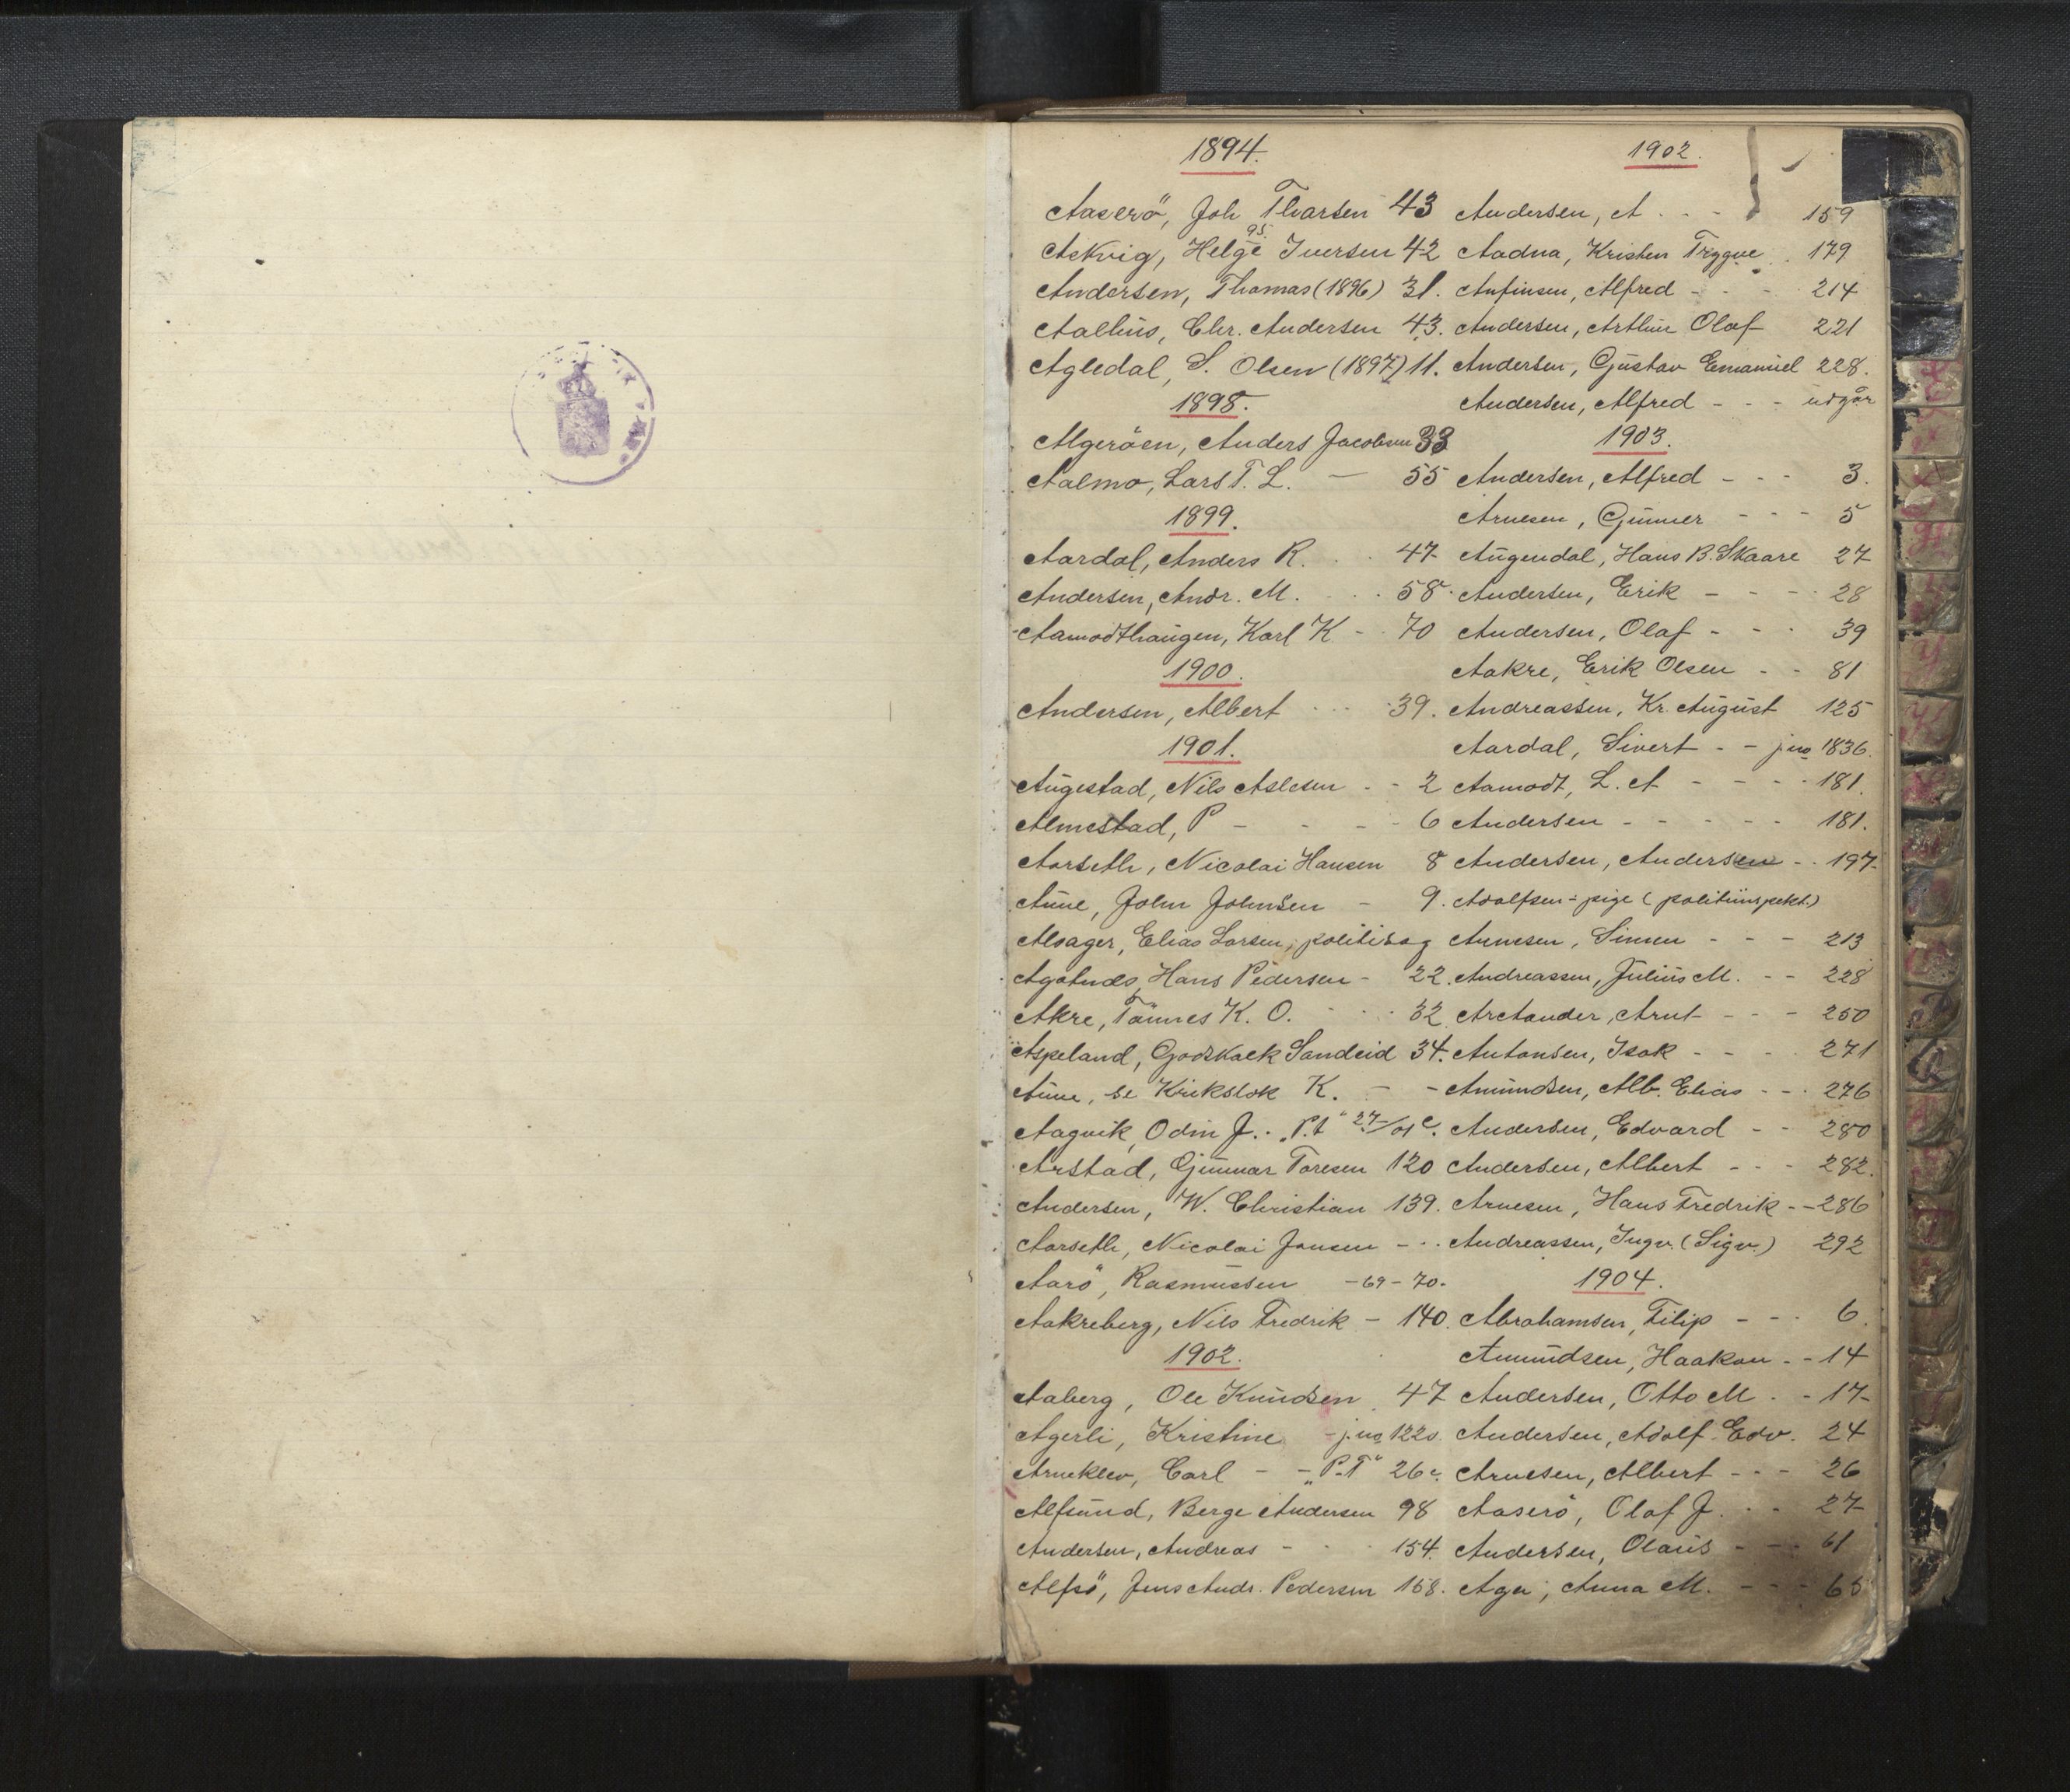 1894.
Aaserö, Joh Thorsen 43
95.
Askvig, Helge Iversen 42
Andersen, Thomas (1896) 31.
Aalhus, Chr. Andersen 43.
Agledal, S. Olsen (1897) 11.
1898.
Algeröen, Anders Jacobsen 33
Aalmo, Lars T. L. — 55
1899.
Aardal, Anders R. . . 47
Andersen, Andr. M. . . . 58.
Aamodthaugen, Karl K - . 70
1900.
Andersen, Albert . . . . 39.
1901.
Augestad, Nils Aslesen - - 2
Almestad, P - - - - 6
Aarseth, Nicolai Hansen 8
Aune, John Johnsen - 9.
Alsager, Elias Larsen, politisag
Hans Pedersen - 22.
Akre, Tönnes K. O. - . . . 32
Aspeland, Godskalk Sandeid 34.
Aune, se Krikslok K. - -
Aagvik, Odin J. . . „P.t“ 27/01 c.
Arstad, Gunnar Toresen 120
Andersen, W. Christian 139.
Aarseth, Nicolai Jansen - . .
Aarö, Rasmussen -69-70.
Aakreberg, Nils Fredrik - 140.
1902.
Aaberg, Ole Knudsen 47
Agerli, Kristine - jno 1220
Arneklev, Carl - - „P.T“ 26 c.
Alfsund, Berge Andersen 98
Andersen, Andreas - . . 154.
Alfsö, Jens Andr. Pedersen 158.
1902.
Andersen, A . . - 159
Aadna, Kristen Trygve . . 179
Anfinsen, Alfred - - - 214
Andersen, Arthur Olaf 221
Andersen, Gustav Emanuel 228.
Andersen, Alfred - - - udgår
1903.
Andersen, Alfred - - - 3.
Arnesen, Gunner - - - 5
Augendal, Hans B. Skaare 27
Andersen, Erik - - - . 28
Andersen, Olaf - - . 39
Aakre, Erik Olsen - - 81
Andreassen, Kr. August 125
Aardal, Sivert - - jno 1836.
Aamodt, L. A - - - . 181.
Andersen - - - - - 181.
Andersen, Andersen - . 197-
Adolfsen - pige (politiinspekt.)
Arnesen, Simen - - - 213
Andreassen, Julius M. - - 228
Arctander, Arnt - - - 250
Antonsen, Isak - - - . 271
Amundsen, Alb. Elias - - . 276
Andersen, Edvard - - 280
Andersen, Albert - - . 282.
Arnesen, Hans Fredrik - - 286
Andreassen, Ingv. (Sigv.) 292
1904.
Abrahamsen, Filip - - . 6.
Amundsen, Haakon - - 14
Andersen, Otto M . - 17-
Andersen, Adolf Edv. 24
Arnesen, Albert - - - 26
Aaserö, Olaf J. . . 27-
Andersen, Olaus - - . 61
Aga, Anna M. - - - 65